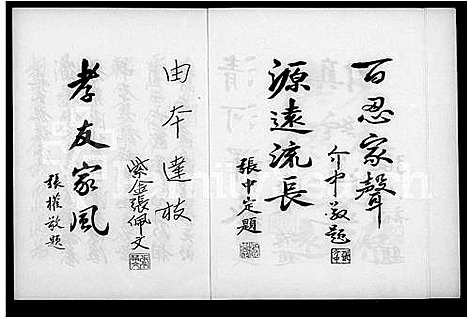 百忍家聲
介中敬題
源遠流長
張中定題
由本達枝
紫金張佩文
孝友家風
張權敬題